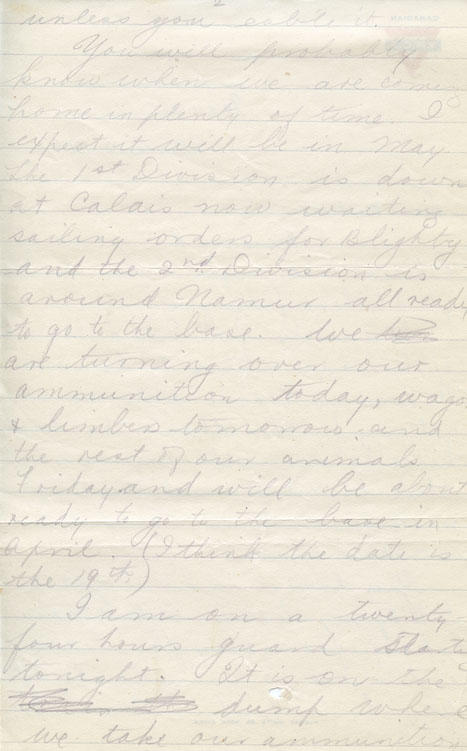 2
unless you cable it.
You will probably
know when we are comin
home in plenty of time. I
expect it will be in May
the 1st Division is down
at Calais now waiting
sailing orders for Blighty
and the 2nd Division is
around Namur all ready
to go to the base. We
are turning over our
ammunition today, wago
& limbers tomorrow and
the rest of our animals
Friday and will be about
ready to go to the base in
April. (I think the date is
the 19th.)
I am on a twenty-
four hours guard starti
tonight. It is on the
dump where
we take our ammunition